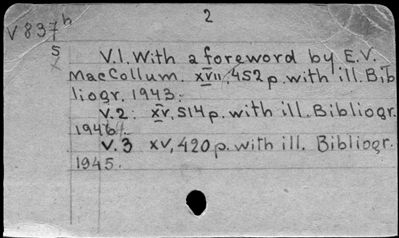 2
V 837h
S
V.1. With a foreword by E.V.
MacCollum. XVII, 452 p. with ill. Bib
liogr. 1943.
V.2. XV, 514 p. with ill. Bibliogr.
1946
V.3 XV, 420 p. with ill. Bibliogr.
1945.